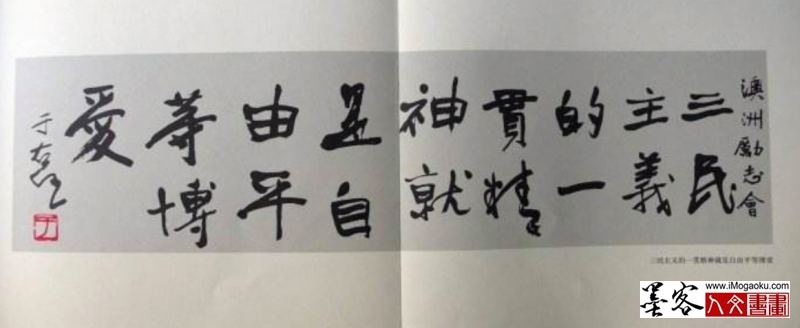 澳洲勵志會
三民
主義
的一
貫精
神就
是自
由平
等博
愛
于右任
三民主义的一贯精神就是自由平等博爱
墨客
www.iMogaoku.com
人文書畫